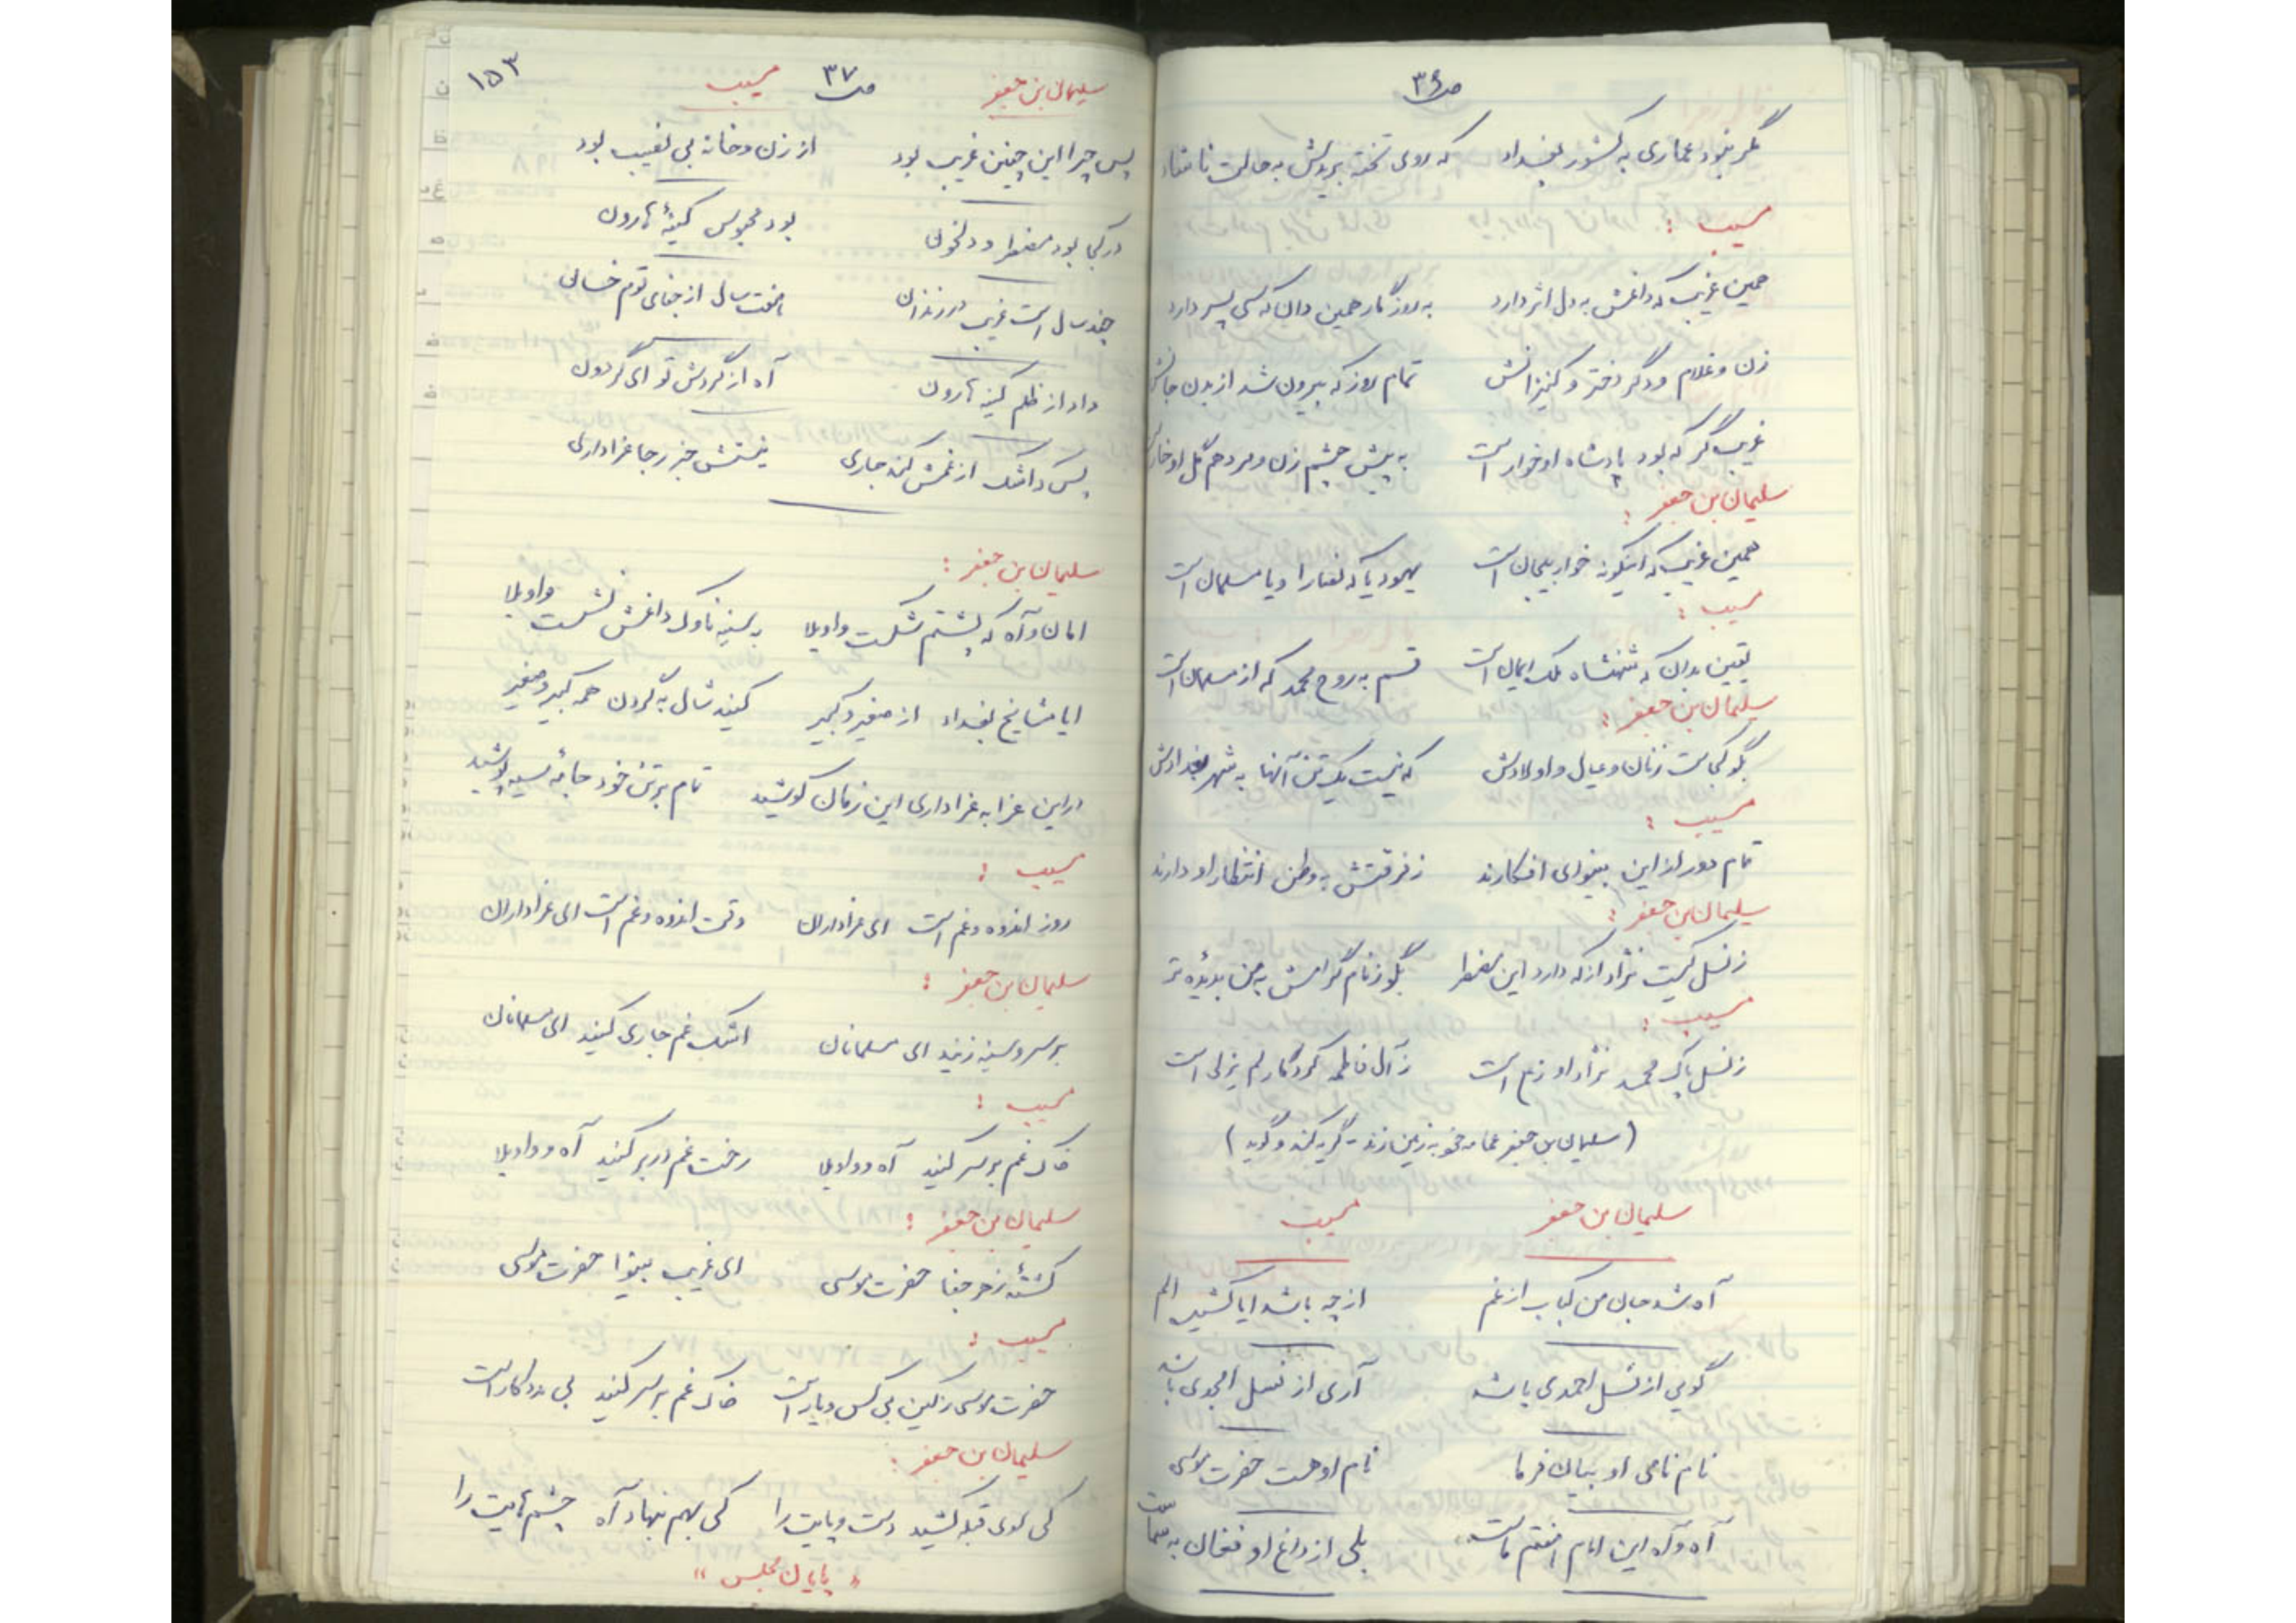 ص ۳۶
مگر نبود عماری به کشور بغداد که روی تخته بریدش به حالت ناشاد
مسیب :
همین غریب که داغش به دل اثر دارد به روزگار همین دان که سی پسر دارد
زن و غلام و دگر دختر و کنیزانش تمام روز که بیرون شد از بدن جانش
غریب گر که بود پادشاه او خوار است به پیش چشم زن و مرد هم گل او خار
سلیمان بن جعفر :
همین غریب که اینگونه خوار و بیجان است یهود یا که نصارا و یا مسلمان است
مسیب :
یقین بدان که شهنشاه ملک ایمان است قسم به روح محمد که از مسلمان است
سلیمان بن جعفر :
بگو کجاست زنان و عیال و اولادش که نیست یک تن آنها به شهر بغدادش
مسیب :
تمام دور از این بینوای افکارند ز فرقتش به وطن انتظار او دارند
سلیمان بن جعفر :
ز نسل کیست نژاد از که دارد این مضطر بگو ز نام گرامش به من بدیده تر
مسیب :
ز نسل پاک محمد نژاد او ز است ز آل فاطمه کردگار لم یزلی است
( سلیمان بن جعفر عمامه خود به زمین زند - گریه کند و گوید )
سلیمان بن جعفر مسیب
آه شد جان من کباب از غم از چه باشد ایا کشیر الم
گویی از نسل احمدی باشد آری از نسل امجدی باشد
نام نامی او بیان فرما نام او هست حضرت موسی
آه و آه این امام هفتم ماست بلی از داغ او فغان به سماست
سلیمان بن جعفر ص ۳۷ مسیب ۱۵۳
پس چرا این چنین غریب بود از زن و خانه بی نصیب بود
در کجا بود مضطر و دلخون بود محبوس کینهٔ هارون
چند سال است غریب در زندان هفت سال از جفای قوم خسان
داد از ظلم کینه هارون آه از گردش تو ای گردون
پس که اشک از غمش کند جاری نیستش جز رجا عزاداری
سلیمان بن جعفر :
امان و آه که پشتم شکست واویلا به سینه ناوک داغش نشست واویلا
ایا مشایخ بغداد از صغیر و کبیر کنید شال به گردن همه کبیر و صغیر
در این عزا به عزاداری این زمان کوشید تمام بر تن خود جامهٔ سیه پوشید
مسیب :
روز اندوه و غم است ای عزاداران وقت اندوه و غم است ای عزاداران
سلیمان بن جعفر :
بر سر و سینه زنید ای مسلمانان اشک غم جاری کنید ای مسلمانان
مسیب :
خاک غم بر سر کنید آه و واویلا رخت غم در بر کنید آه و واویلا
سلیمان بن جعفر :
کشتهٔ زهر جفا حضرت موسی ای غریب بینوا حضرت موسی
مسیب :
حضرت موسی ز کین بی کس و یار است خاک غم بر سر کنید بی مددکار است
سلیمان بن جعفر :
کی سوی قبله کشید دست و پایت را کی بهم بنهاد آه چشم هایت را
« پایان مجلس »